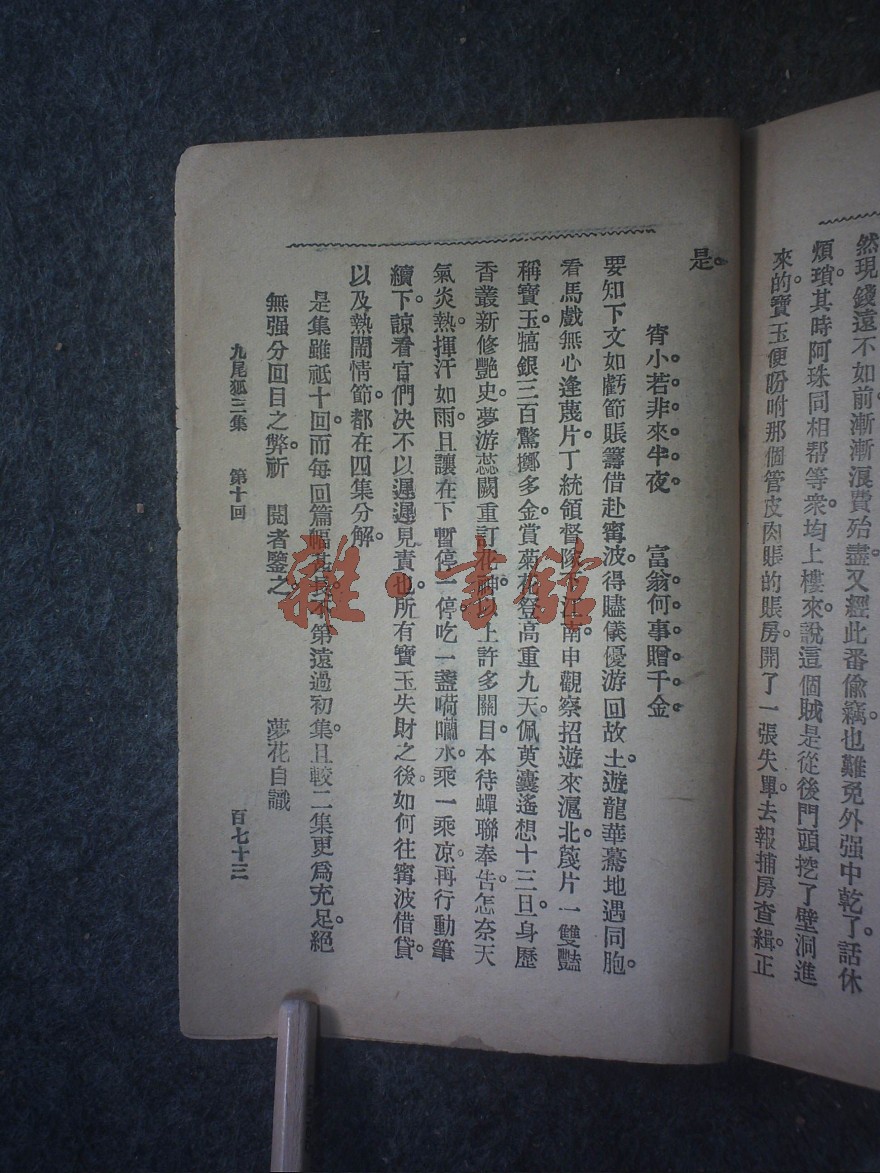 然現錢遠不如前。漸漸浪費殆盡。又經此番偷竊。也難免外强中乾了。話休
煩瑣。其時阿珠同相帮等衆。均上樓來。說這個賊是從後門頭挖了壁洞進
來的。寶玉便吩咐那個管皮肉賬的賬房。開了一張失單。去報捕房查緝。正
是。
宵小若非來半夜 富翁何事贈千金
要知下文如虧節賬籌借赴甯波。得贐儀優游回故土。遊龍華驀地遇同胞。
看馬戲無心逢蔑片。丁統領督隊下江南。申觀察招遊來滬北。篾片一雙豔
稱寶玉。犒銀三百驚擲多金。賞菊花登高重九天。佩萸囊遙想十三旦。身歷
香叢新修艷史。夢游蕊闕重訂花神。以上許多關目。本待蟬聯奉告。怎奈天
氣炎熱。揮汗如雨。且讓在下暫停一停。吃一盞嗬囒水。乘一乘凉。再行動筆
續下。諒看官們决不以遲遲見責也。所有寶玉失財之後。如何往甯波借貸。
以及熱鬧情節。都在四集分解。
是集雖祗十回。而每回篇幅尤長。不第遠過初集。且較二集更爲充足。絕
無强分回目之弊。祈 閱者鑒之。 夢花自識
九尾狐三集 第十回 百七十三
雜·書館